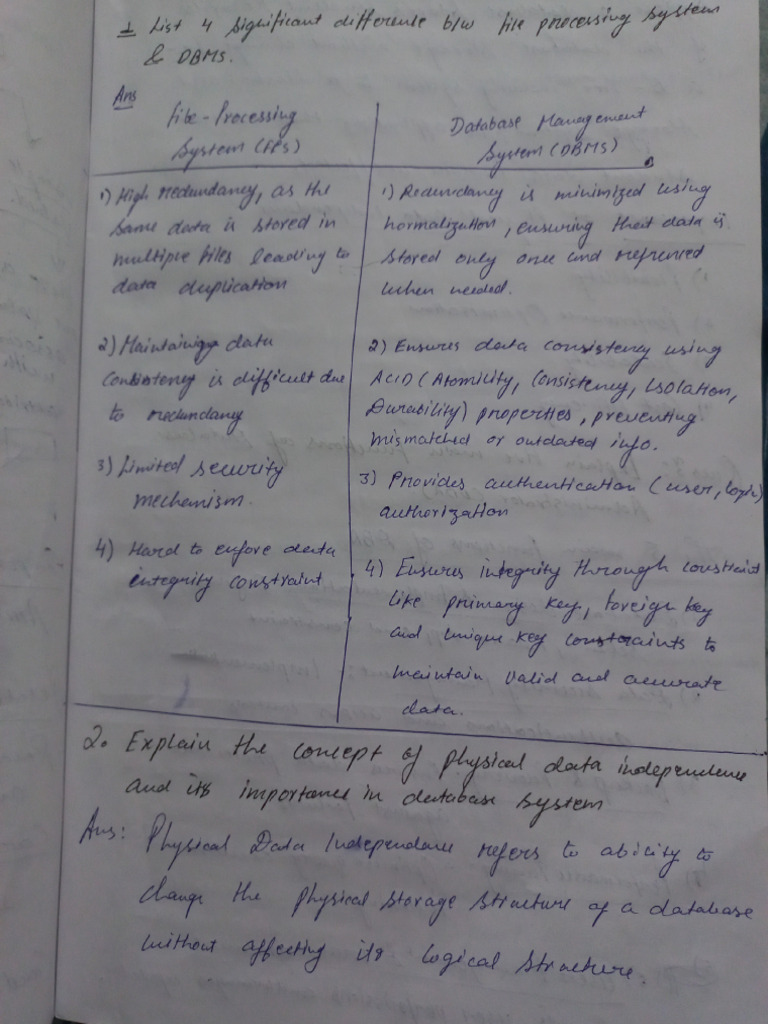 1 List 4 Significant difference b/w file processing system
& DBMS.
Ans
File-Processing
System (FPS)
Database Management
System (DBMS)
1) High redundancy, as the
same data is stored in
multiple files leading to
data duplication
1) Redundancy is minimized using
normalization, ensuring that data is
stored only once and referenced
when needed.
2) Maintaining data
consistency is difficult due
to redundancy
2) Ensures data consistency using
ACID (Atomicity, Consistency, Isolation,
Durability) properties, preventing
mismatched or outdated info.
3) Limited security
mechanism.
3) Provides authentication (user, login)
authorization
4) Hard to enforce data
integrity constraint
4) Ensures integrity through constraint
like primary key, foreign key
and unique key constraints to
maintain valid and accurate
data.
2. Explain the concept of physical data independence
and its importance in database system
Ans: Physical Data Independence refers to ability to
change the physical storage structure of a database
without affecting its logical structure.